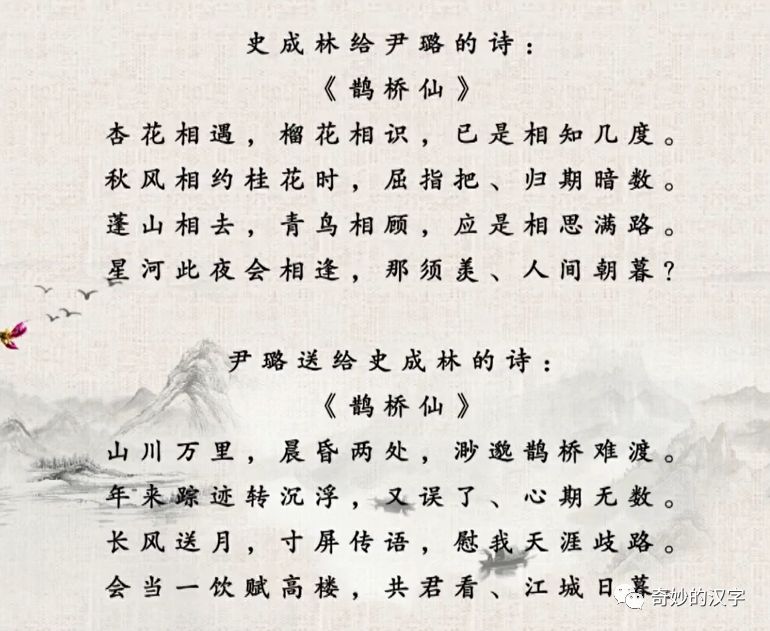 史成林给尹璐的诗：
《鹊桥仙》
杏花相遇，榴花相识，已是相知几度。
秋风相约桂花时，屈指把、归期暗数。
蓬山相去，青鸟相顾，应是相思满路。
星河此夜会相逢，那须羡、人间朝暮？
尹璐送给史成林的诗：
《鹊桥仙》
山川万里，晨昏两处，渺邈鹊桥难渡。
年来踪迹转沉浮，又误了、心期无数。
长风送月，寸屏传语，慰我天涯歧路。
会当一饮赋高楼，共君看、江城日暮
奇妙的汉字